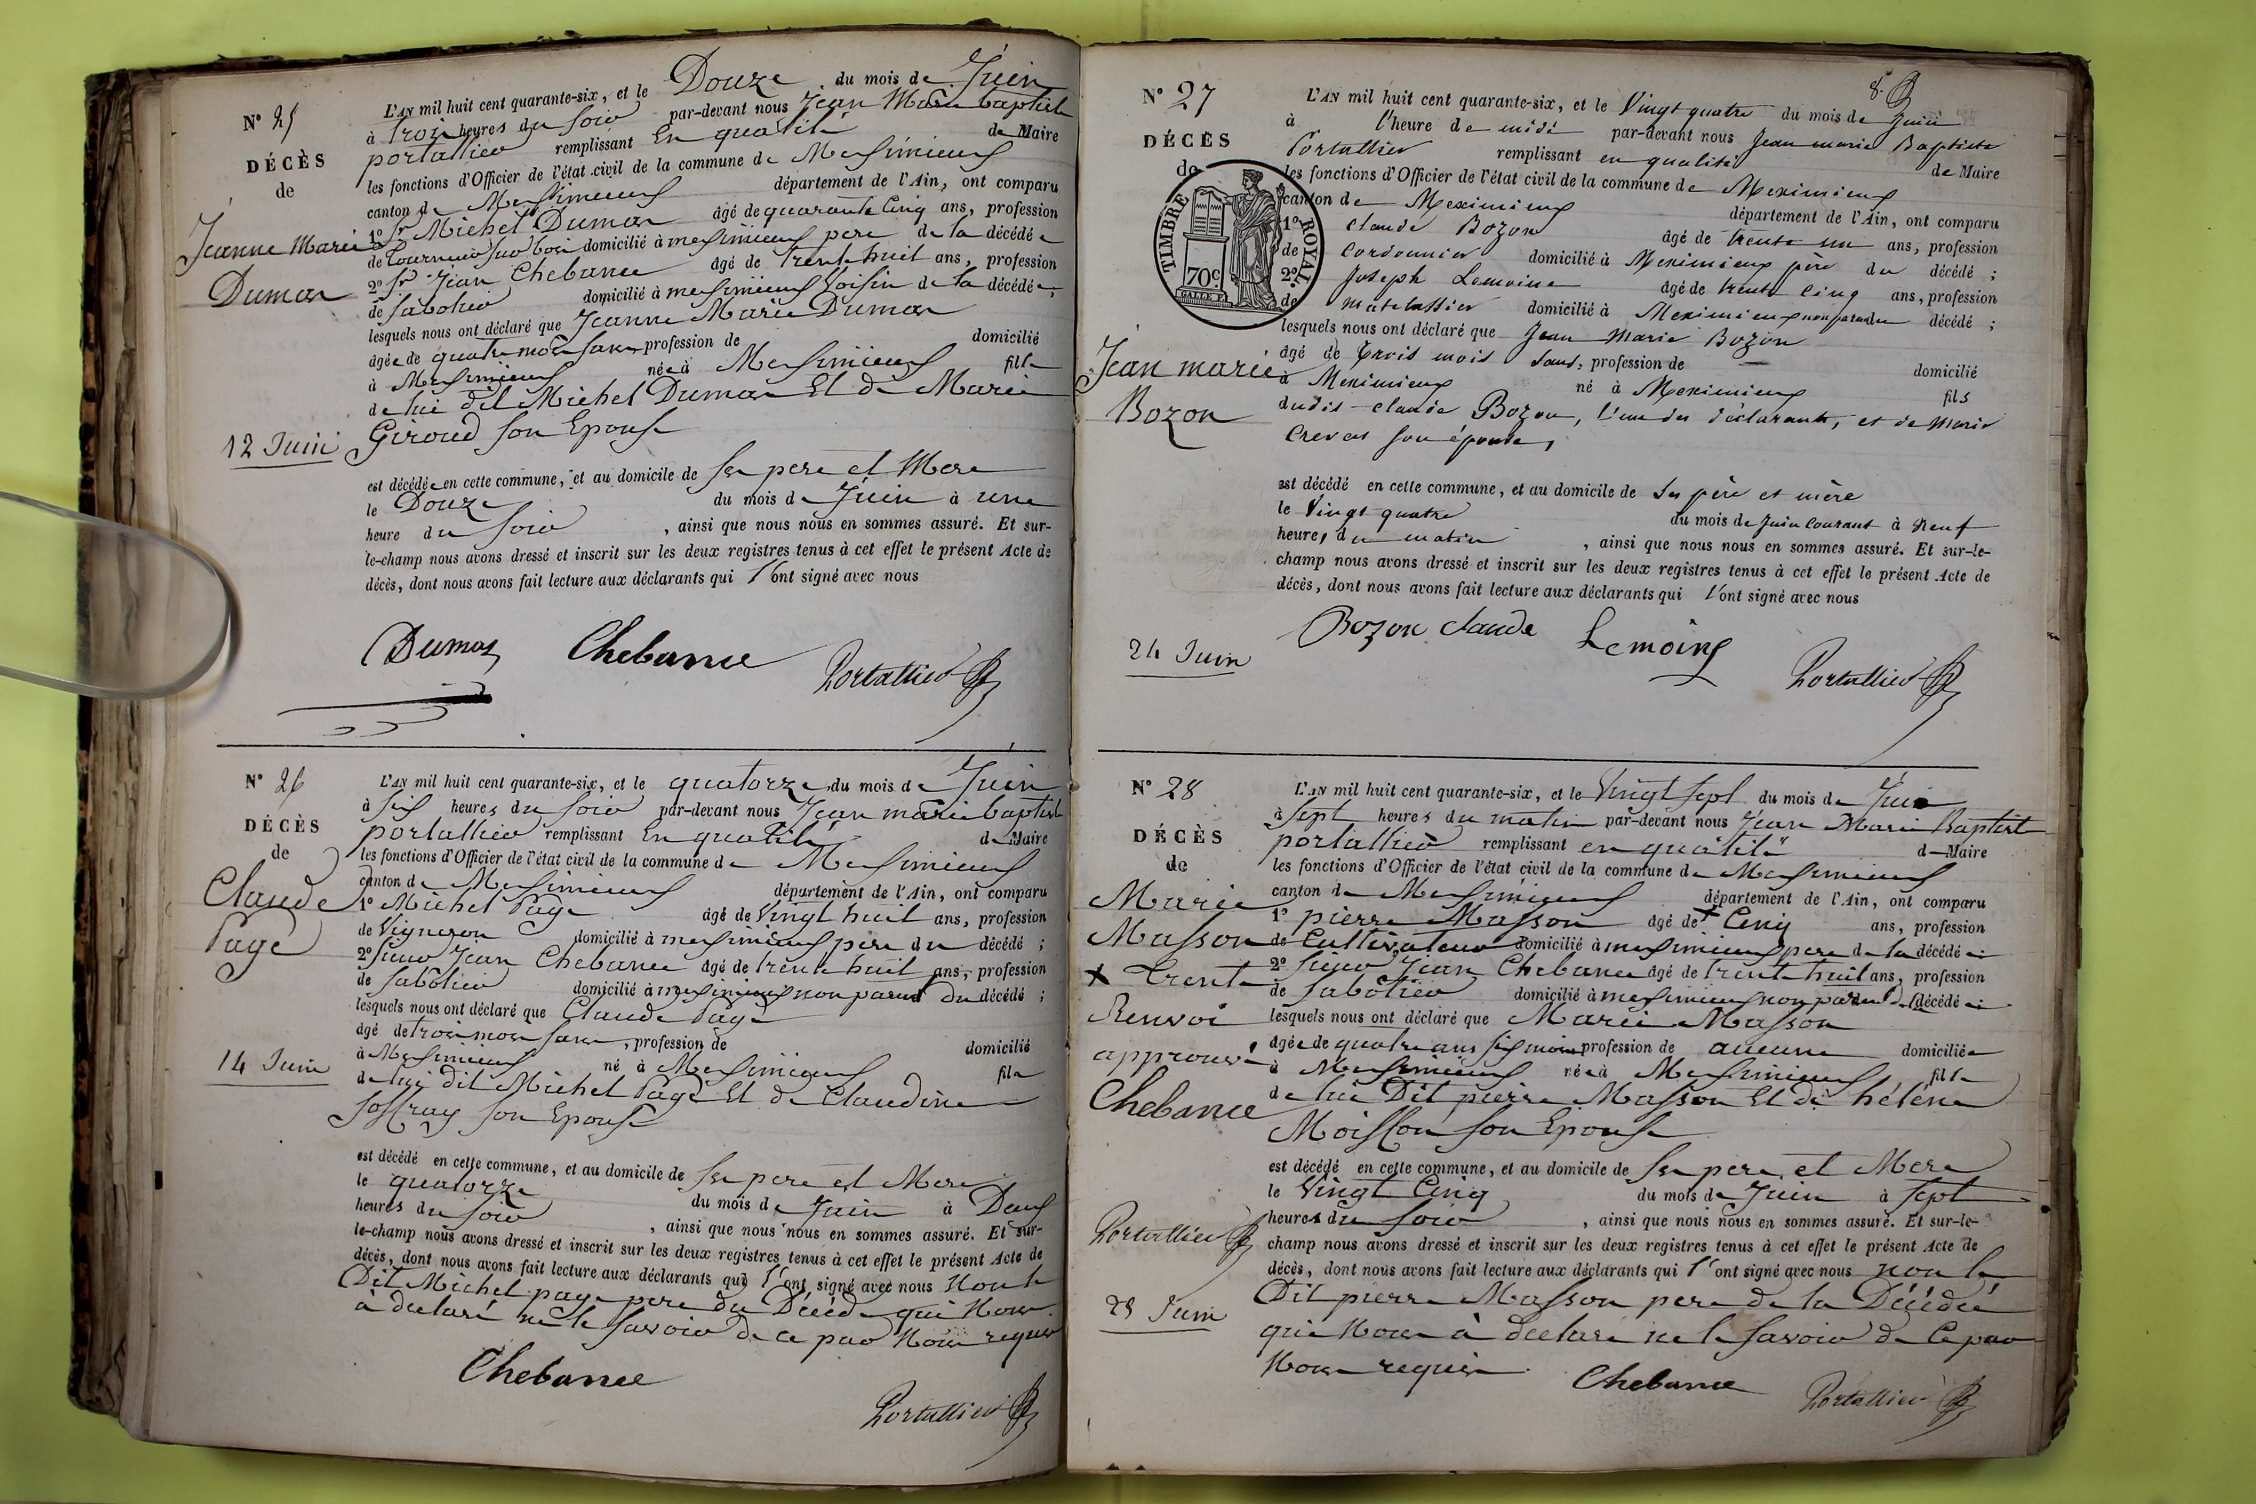 N° 25
DÉCÈS
de
Jeanne Marie
Dumas
12 Juin
L'AN mil huit cent quarante-six, et le Douze du mois de Juin
à trois heures du soir par-devant nous Jean Marie baptiste
portallier remplissant En qualité de Maire
les fonctions d'Officier de l'état civil de la commune de Meximieux
canton de Meximieux département de l'Ain, ont comparu
1° Sr Michel Dumas âgé de quarante Cinq ans, profession
de tourneur sur bois domicilié à meximieux pere de la décédée
2° Sr Jean Chebance âgé de trente huit ans, profession
de Sabotier domicilié à meximieux Voisin de la décédée;
lesquels nous ont déclaré que Jeanne Marie Dumas
âgée de quatre mois sans profession de domicilié
à Meximieux née à Meximieux fille
de lui dit Michel Dumas Et de Marie
Giroud son Epouse
est décédée en cette commune, et au domicile de Ses pere et Mere
le Douze du mois de Juin à une
heure du soir, ainsi que nous nous en sommes assuré. Et sur-
le-champ nous avons dressé et inscrit sur les deux registres tenus à cet effet le présent Acte de
décès, dont nous avons fait lecture aux déclarants qui l'ont signé avec nous
Dumas Chebance Portallier
N° 26
DÉCÈS
de
Claude
Page
14 Juin
L'AN mil huit cent quarante-six, et le quatorze du mois de Juin
à Six heures du soir par-devant nous Jean marie baptiste
portallier remplissant En qualité de Maire
les fonctions d'Officier de l'état civil de la commune de Meximieux
canton de Meximieux département de l'Ain, ont comparu
1° Michel Page âgé de Vingt huit ans, profession
de Vigneron domicilié à meximieux pere du décédé;
2° Sieur Jean Chebance âgé de trente huit ans, profession
de Sabotier domicilié à meximieux non parent du décédé;
lesquels nous ont déclaré que Claude Page
âgé de trois mois sans, profession de domicilié
à Meximieux né à Meximieux fils
de lui dit Michel Page Et de Claudine
Soffray son Epouse
est décédé en cette commune, et au domicile de Ses pere et Mere
le quatorze du mois de Juin à Deux
heures du soir, ainsi que nous nous en sommes assuré. Et sur-
le-champ nous avons dressé et inscrit sur les deux registres tenus à cet effet le présent Acte de
décès, dont nous avons fait lecture aux déclarants qui l'ont signé avec nous Non le
Dit Michel page pere du Décédé qui Nous
à declaré ne le savoir de ce par Nous requis
Chebance
Portallier
8.
N° 27
DÉCÈS
de
TIMBRE ROYAL
70 c.
Jean marie
Bozon
24 Juin
L'AN mil huit cent quarante-six, et le Vingt quatre du mois de Juin
à l'heure de midi par-devant nous Jean marie Baptiste
Portallier remplissant en qualité de Maire
les fonctions d'Officier de l'état civil de la commune de Meximieux
canton de Meximieux département de l'Ain, ont comparu
1° Claude Bozon âgé de trente un ans, profession
de Cordonnier domicilié à Meximieux père du décédé;
2° Joseph Lemoine âgé de trente cinq ans, profession
de matelassier domicilié à Meximieux non parent du décédé;
lesquels nous ont déclaré que Jean Marie Bozon
âgé de trois mois sans, profession de — domicilié
à Meximieux né à Meximieux fils
dudit Claude Bozon, l'un des déclarants, et de Marie
Crevat son épouse,
est décédé en cette commune, et au domicile de Ses père et mère
le Vingt quatre du mois de Juin courant à Neuf
heures du matin, ainsi que nous nous en sommes assuré. Et sur-le-
champ nous avons dressé et inscrit sur les deux registres tenus à cet effet le présent Acte de
décès, dont nous avons fait lecture aux déclarants qui l'ont signé avec nous
Bozon Claude Lemoine
Portallier
N° 28
DÉCÈS
de
Marie
Masson
x trente
Renvoi
approuvé
Chebance
Portallier
25 Juin
L'AN mil huit cent quarante-six, et le Vingt Sept du mois de Juin
à Sept heures du matin par-devant nous Jean Marie Baptiste
portallier remplissant en qualité de Maire
les fonctions d'Officier de l'état civil de la commune de Meximieux
canton de Meximieux département de l'Ain, ont comparu
1° pierre Masson âgé de x Cinq ans, profession
de Cultivateur domicilié à meximieux pere de la décédée
2° Sieur Jean Chebance âgé de trente huit ans, profession
de Sabotier domicilié à meximieux non parent de la décédée
lesquels nous ont déclaré que Marie Masson
âgée de quatre ans six mois profession de aucune domiciliée
à Meximieux née à Meximieux fille
de lui Dit pierre Masson Et de hélène
Moisson son Epouse
est décédé en cette commune, et au domicile de Ses pere et Mere
le Vingt Cinq du mois de Juin à Sept
heures du soir, ainsi que nous nous en sommes assuré. Et sur-le-
champ nous avons dressé et inscrit sur les deux registres tenus à cet effet le présent Acte de
décès, dont nous avons fait lecture aux déclarants qui l'ont signé avec nous non le
Dit pierre Masson pere de la Décédée
qui Nous à declaré ne le savoir de Ce par
Nous requis
Chebance Portallier